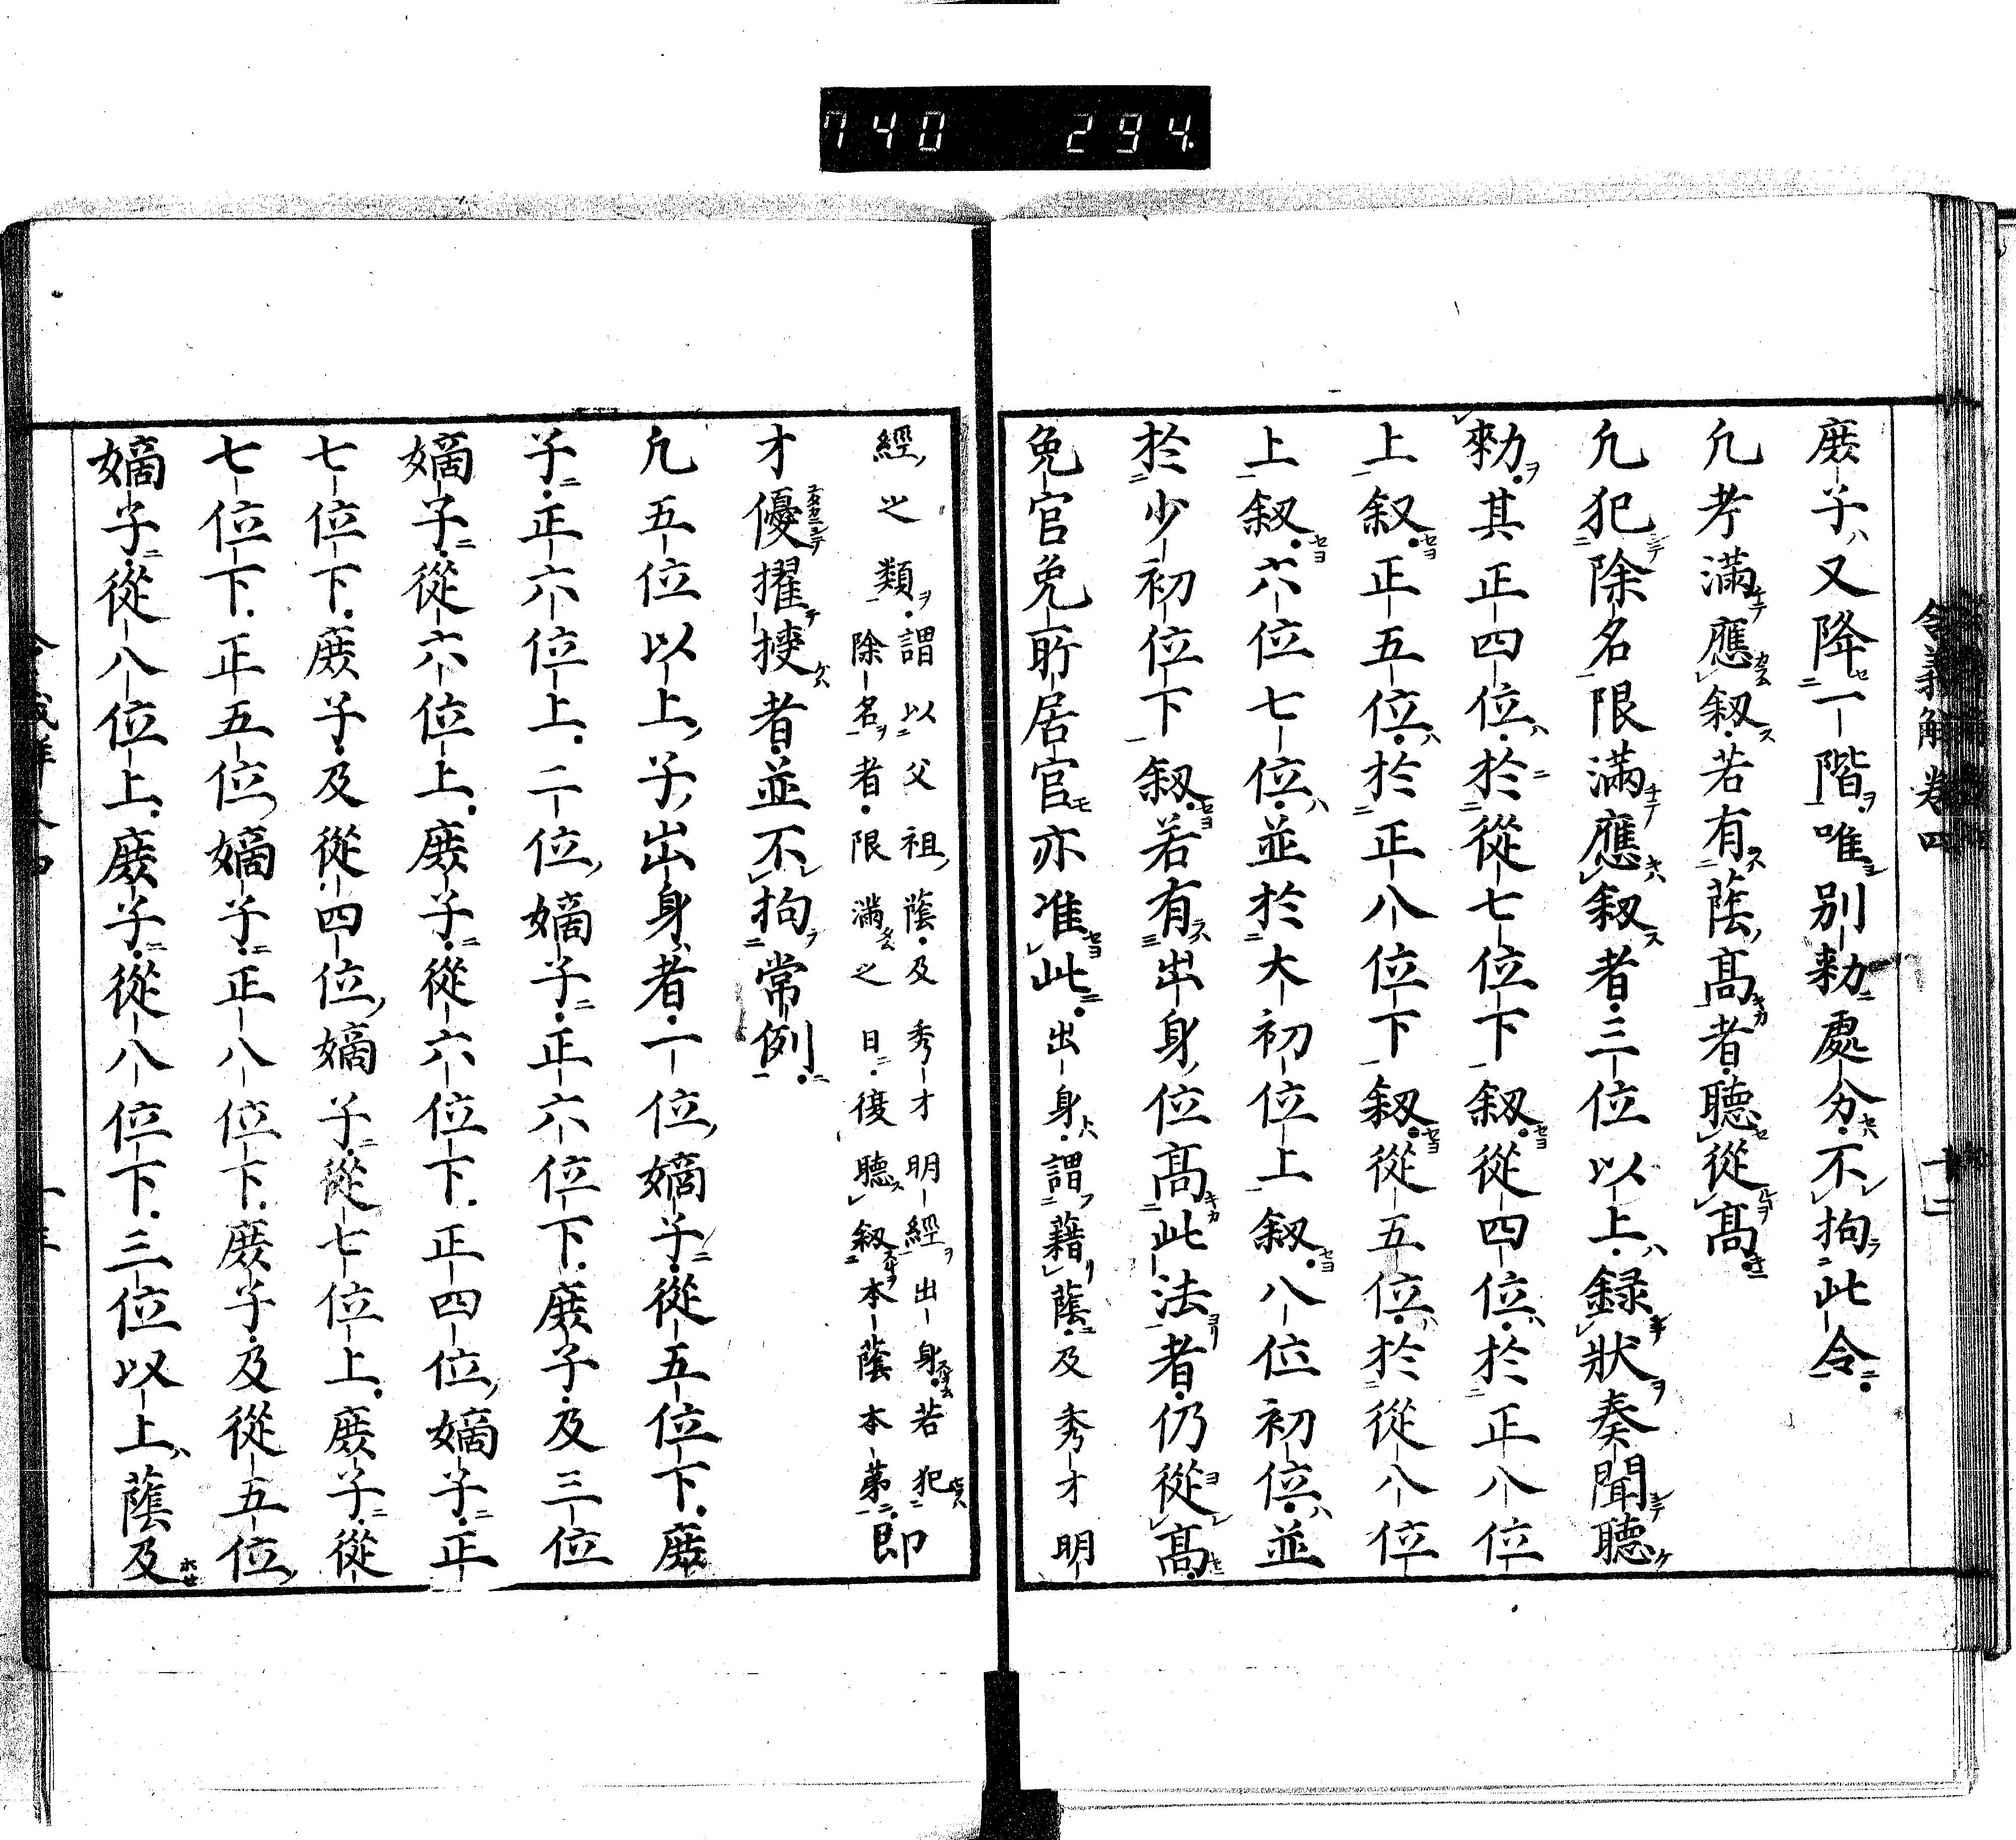 740 294.
令義解卷四
庶子又降一階唯別勅處分不拘此令
凡考滿應叙若有蔭高者聽從高
凡犯除名限滿應叙者三位以上錄狀奏聞聽
勅其正四位於從七位下叙從四位於正八位
上叙正五位於正八位下叙從五位於從八位
上叙六位七位並於大初位上叙八位初位並
於少初位下叙若有出身位高此法者仍從高
免官免所居官亦准此出身謂藉蔭及秀才明
經之類謂以父祖蔭及秀才明經出身若犯
除名者限滿之日復聽叙本蔭本第即
才優擢授者並不拘常例
凡五位以上子出身者一位嫡子從五位下庶
子正六位上二位嫡子正六位下庶子及三位
嫡子從六位上庶子從六位下正四位嫡子正
七位下庶子及從四位嫡子從七位上庶子從
七位下正五位嫡子正八位下庶子及從五位
嫡子從八位上庶子從八位下三位以上蔭及